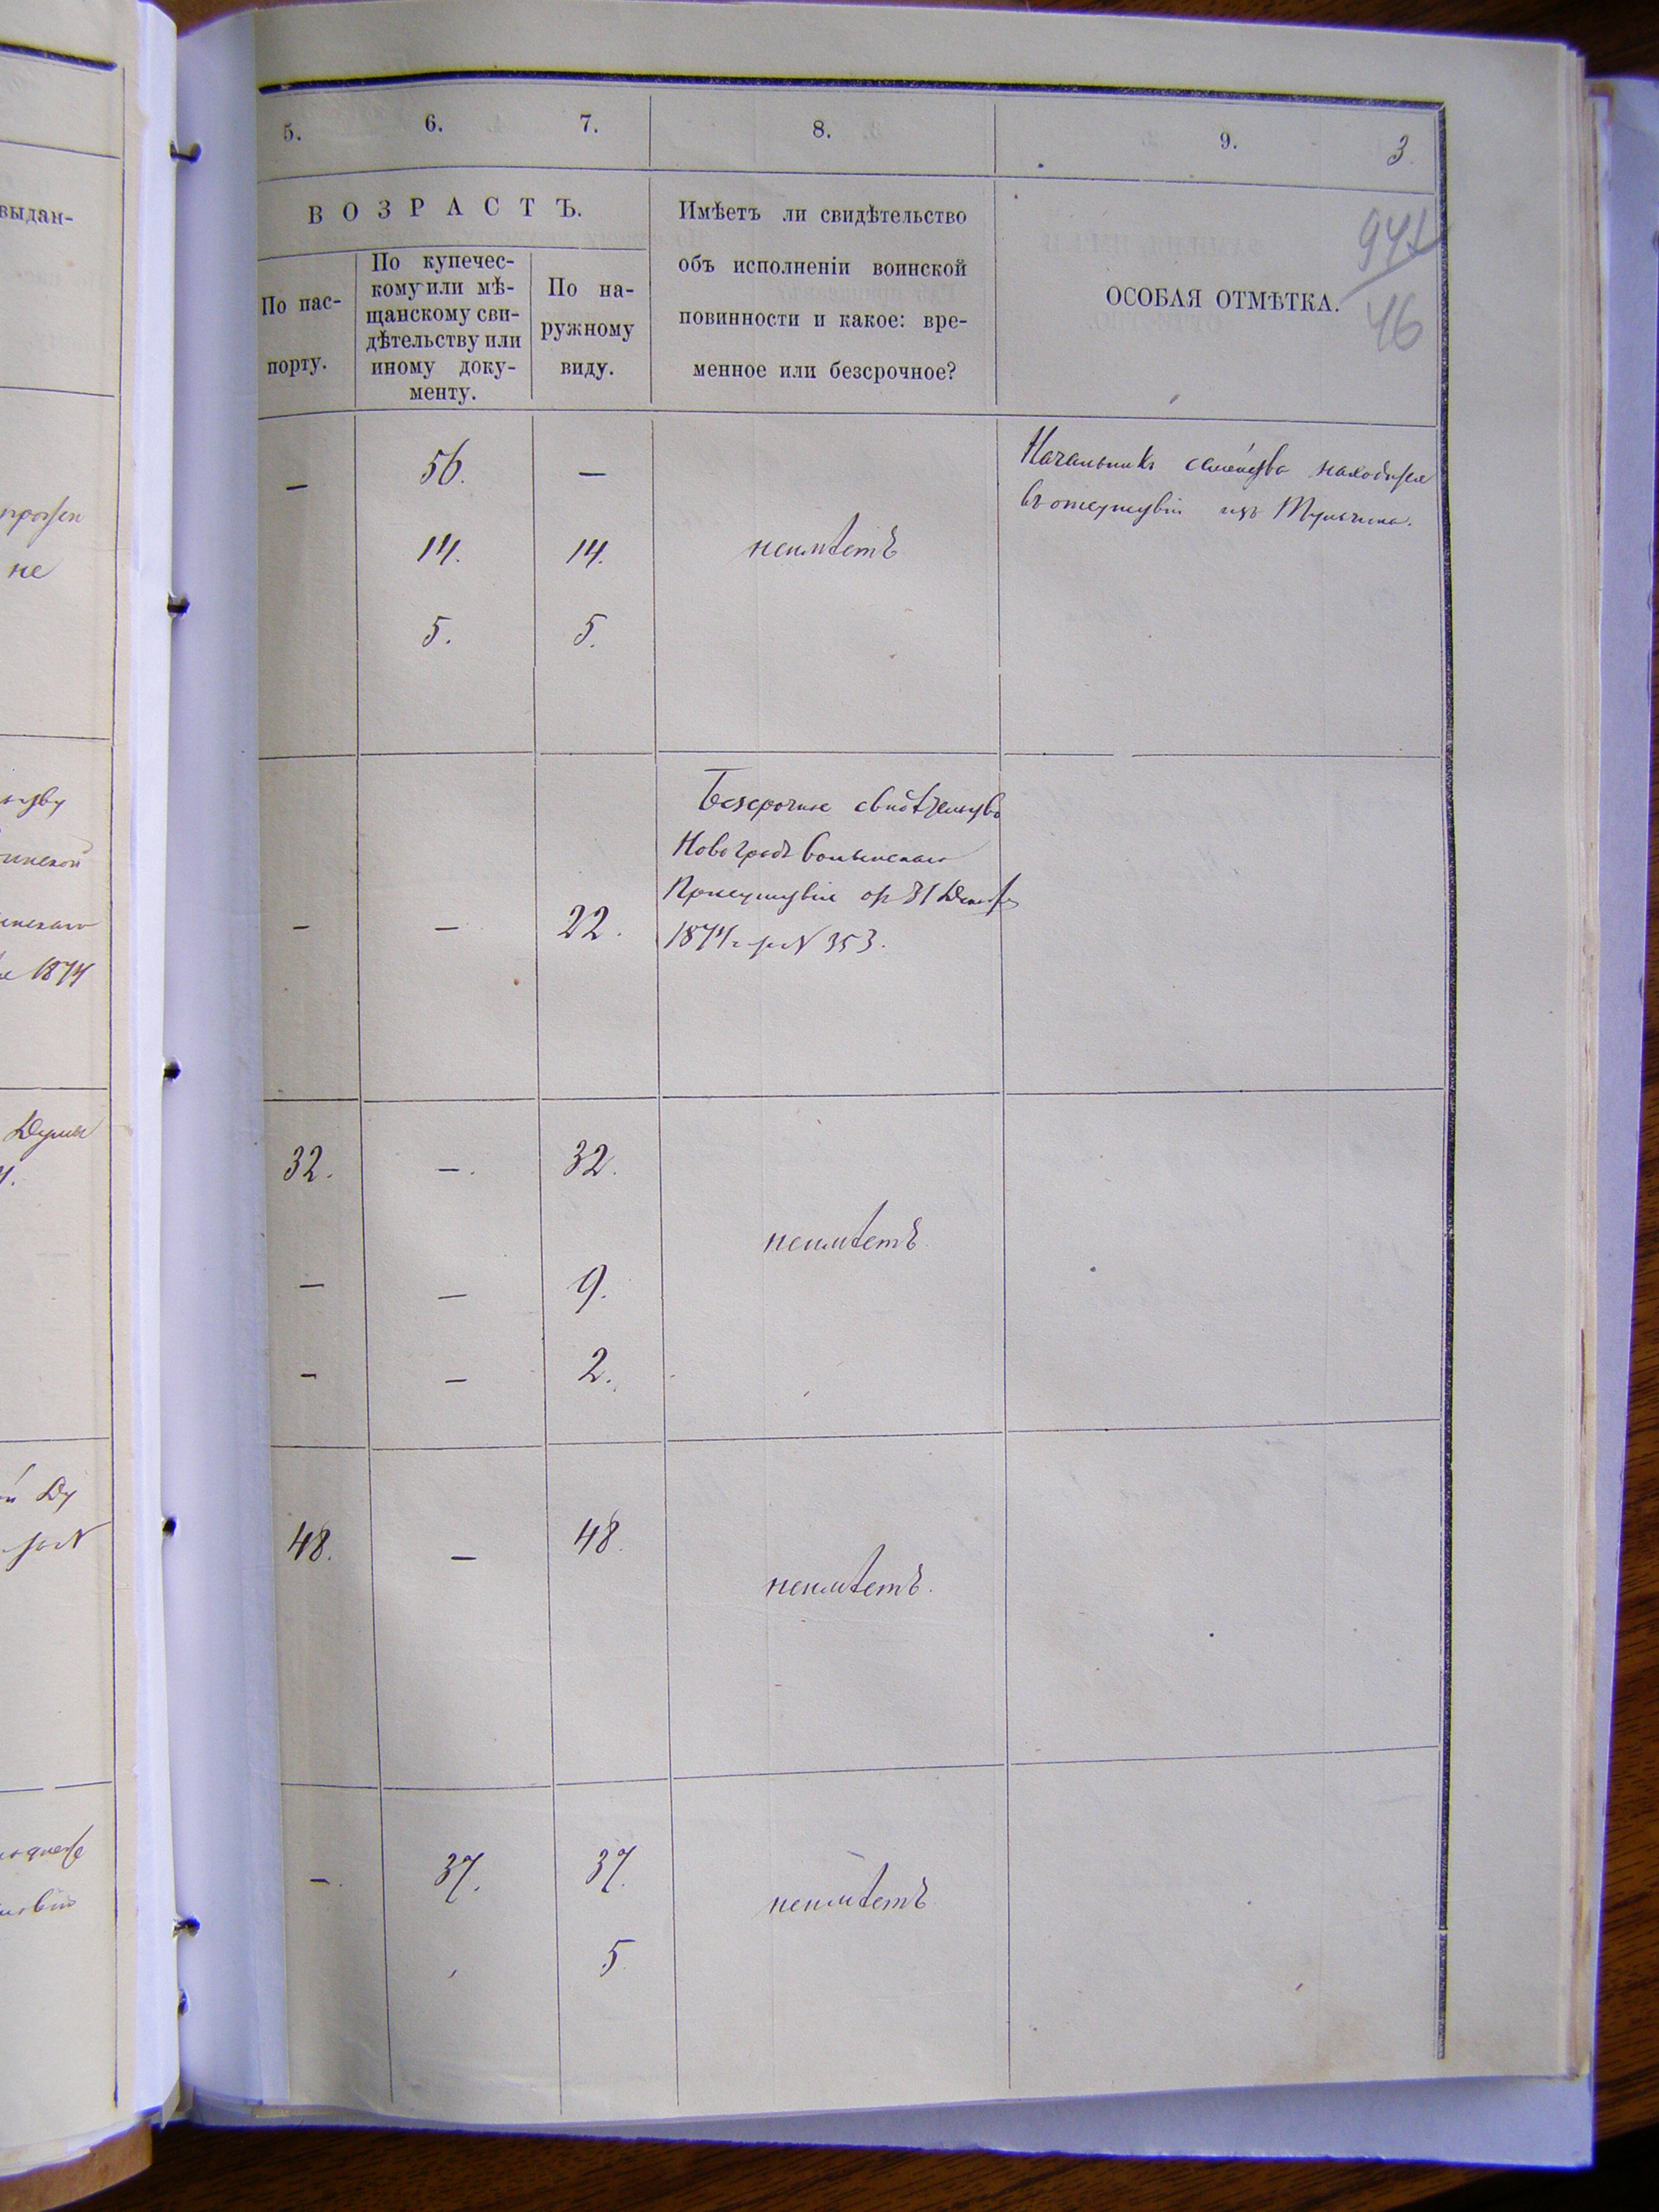 выдан-
не
1874
5.
6.
7.
8.
9.
3
В О З Р А С Т Ъ.
По пас-
порту.
По купечес-
кому или мѣ-
щанскому сви-
дѣтельству или
иному доку-
менту.
По на-
ружному
виду.
Имѣетъ ли свидѣтельство
объ исполненіи воинской
повинности и какое: вре-
менное или безсрочное?
ОСОБАЯ ОТМѢТКА.
46
— 56. —
14. 14. неимѣетъ
5. 5.
Начальникъ семейства находится
въ отсутствіи изъ Тульчина.
— — 22.
Безсрочное свидѣтельство
Новоградъ Волынскаго
Присутствія от 31 Декабря
1874 г за N 353.
32. — . 32.
неимѣетъ
— — 9.
— — 2.
48. — 48.
неимѣетъ.
— . 37. 37.
неимѣетъ
5